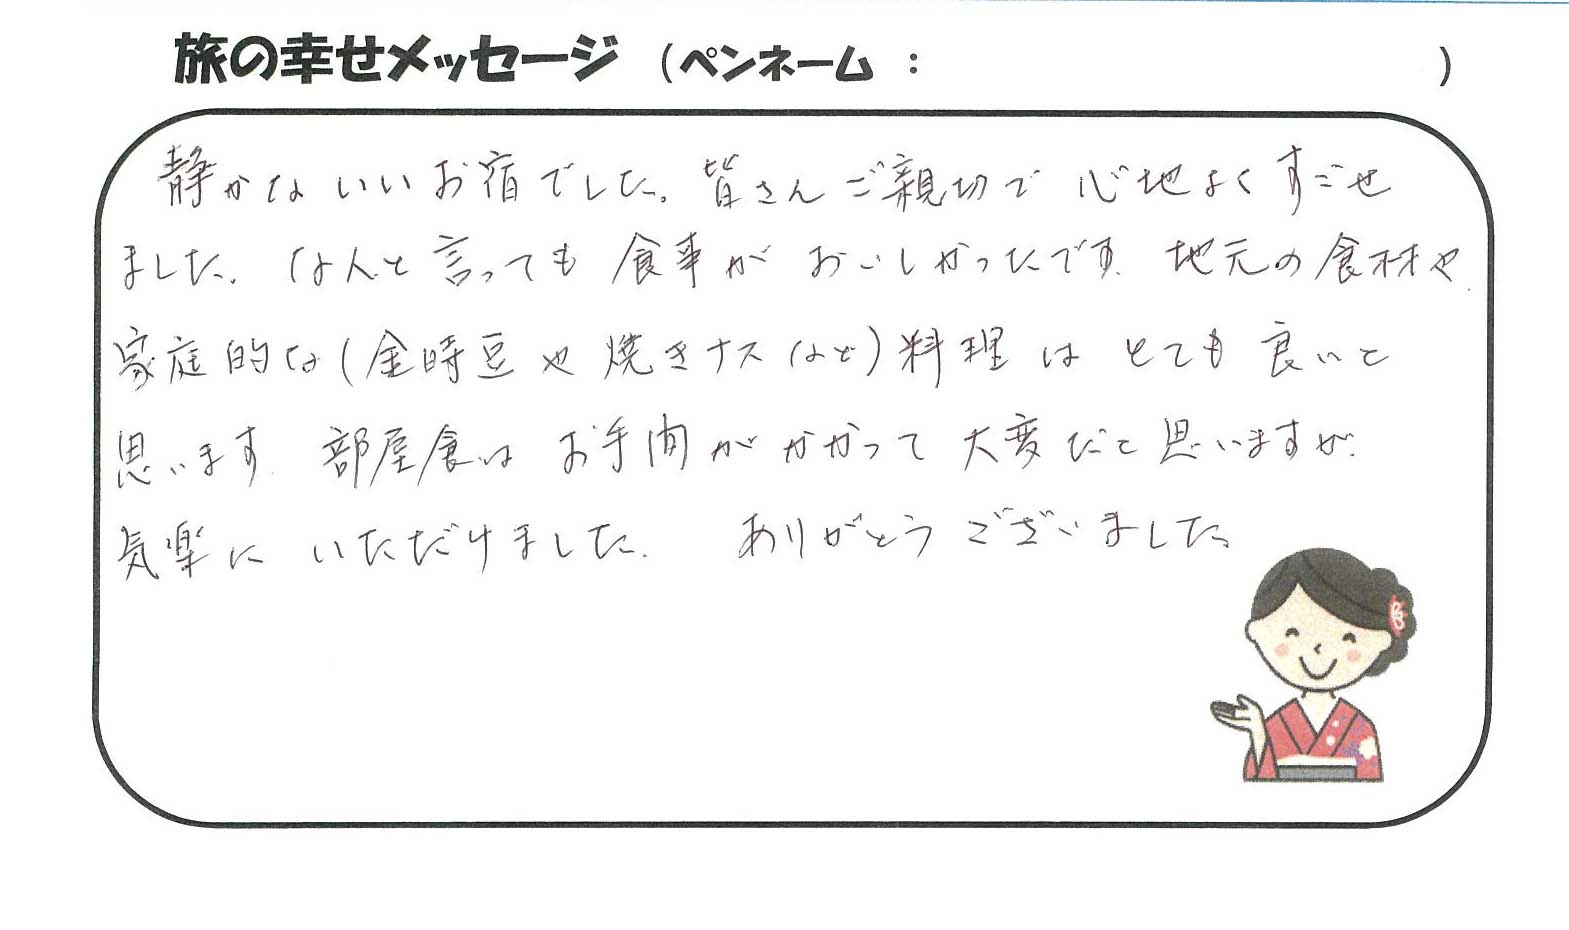 旅の幸せメッセージ（ペンネーム：　　　　）
静かな いい お宿でした。皆さん ご親切で 心地よく すごせ
ました。なんと言っても 食事が おいしかったです。地元の食材や
家庭的な(金時豆や焼きナスなど)料理は とても 良いと
思います。部屋食は お手間がかかって 大変だと思いますが、
気楽に いただけました。 ありがとう ございました。